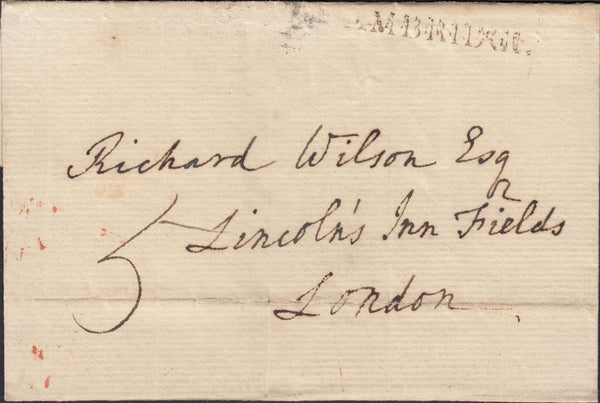 CAMBRIDGE.
Richard Wilson Esqr
Lincoln's Inn Fields
5
London